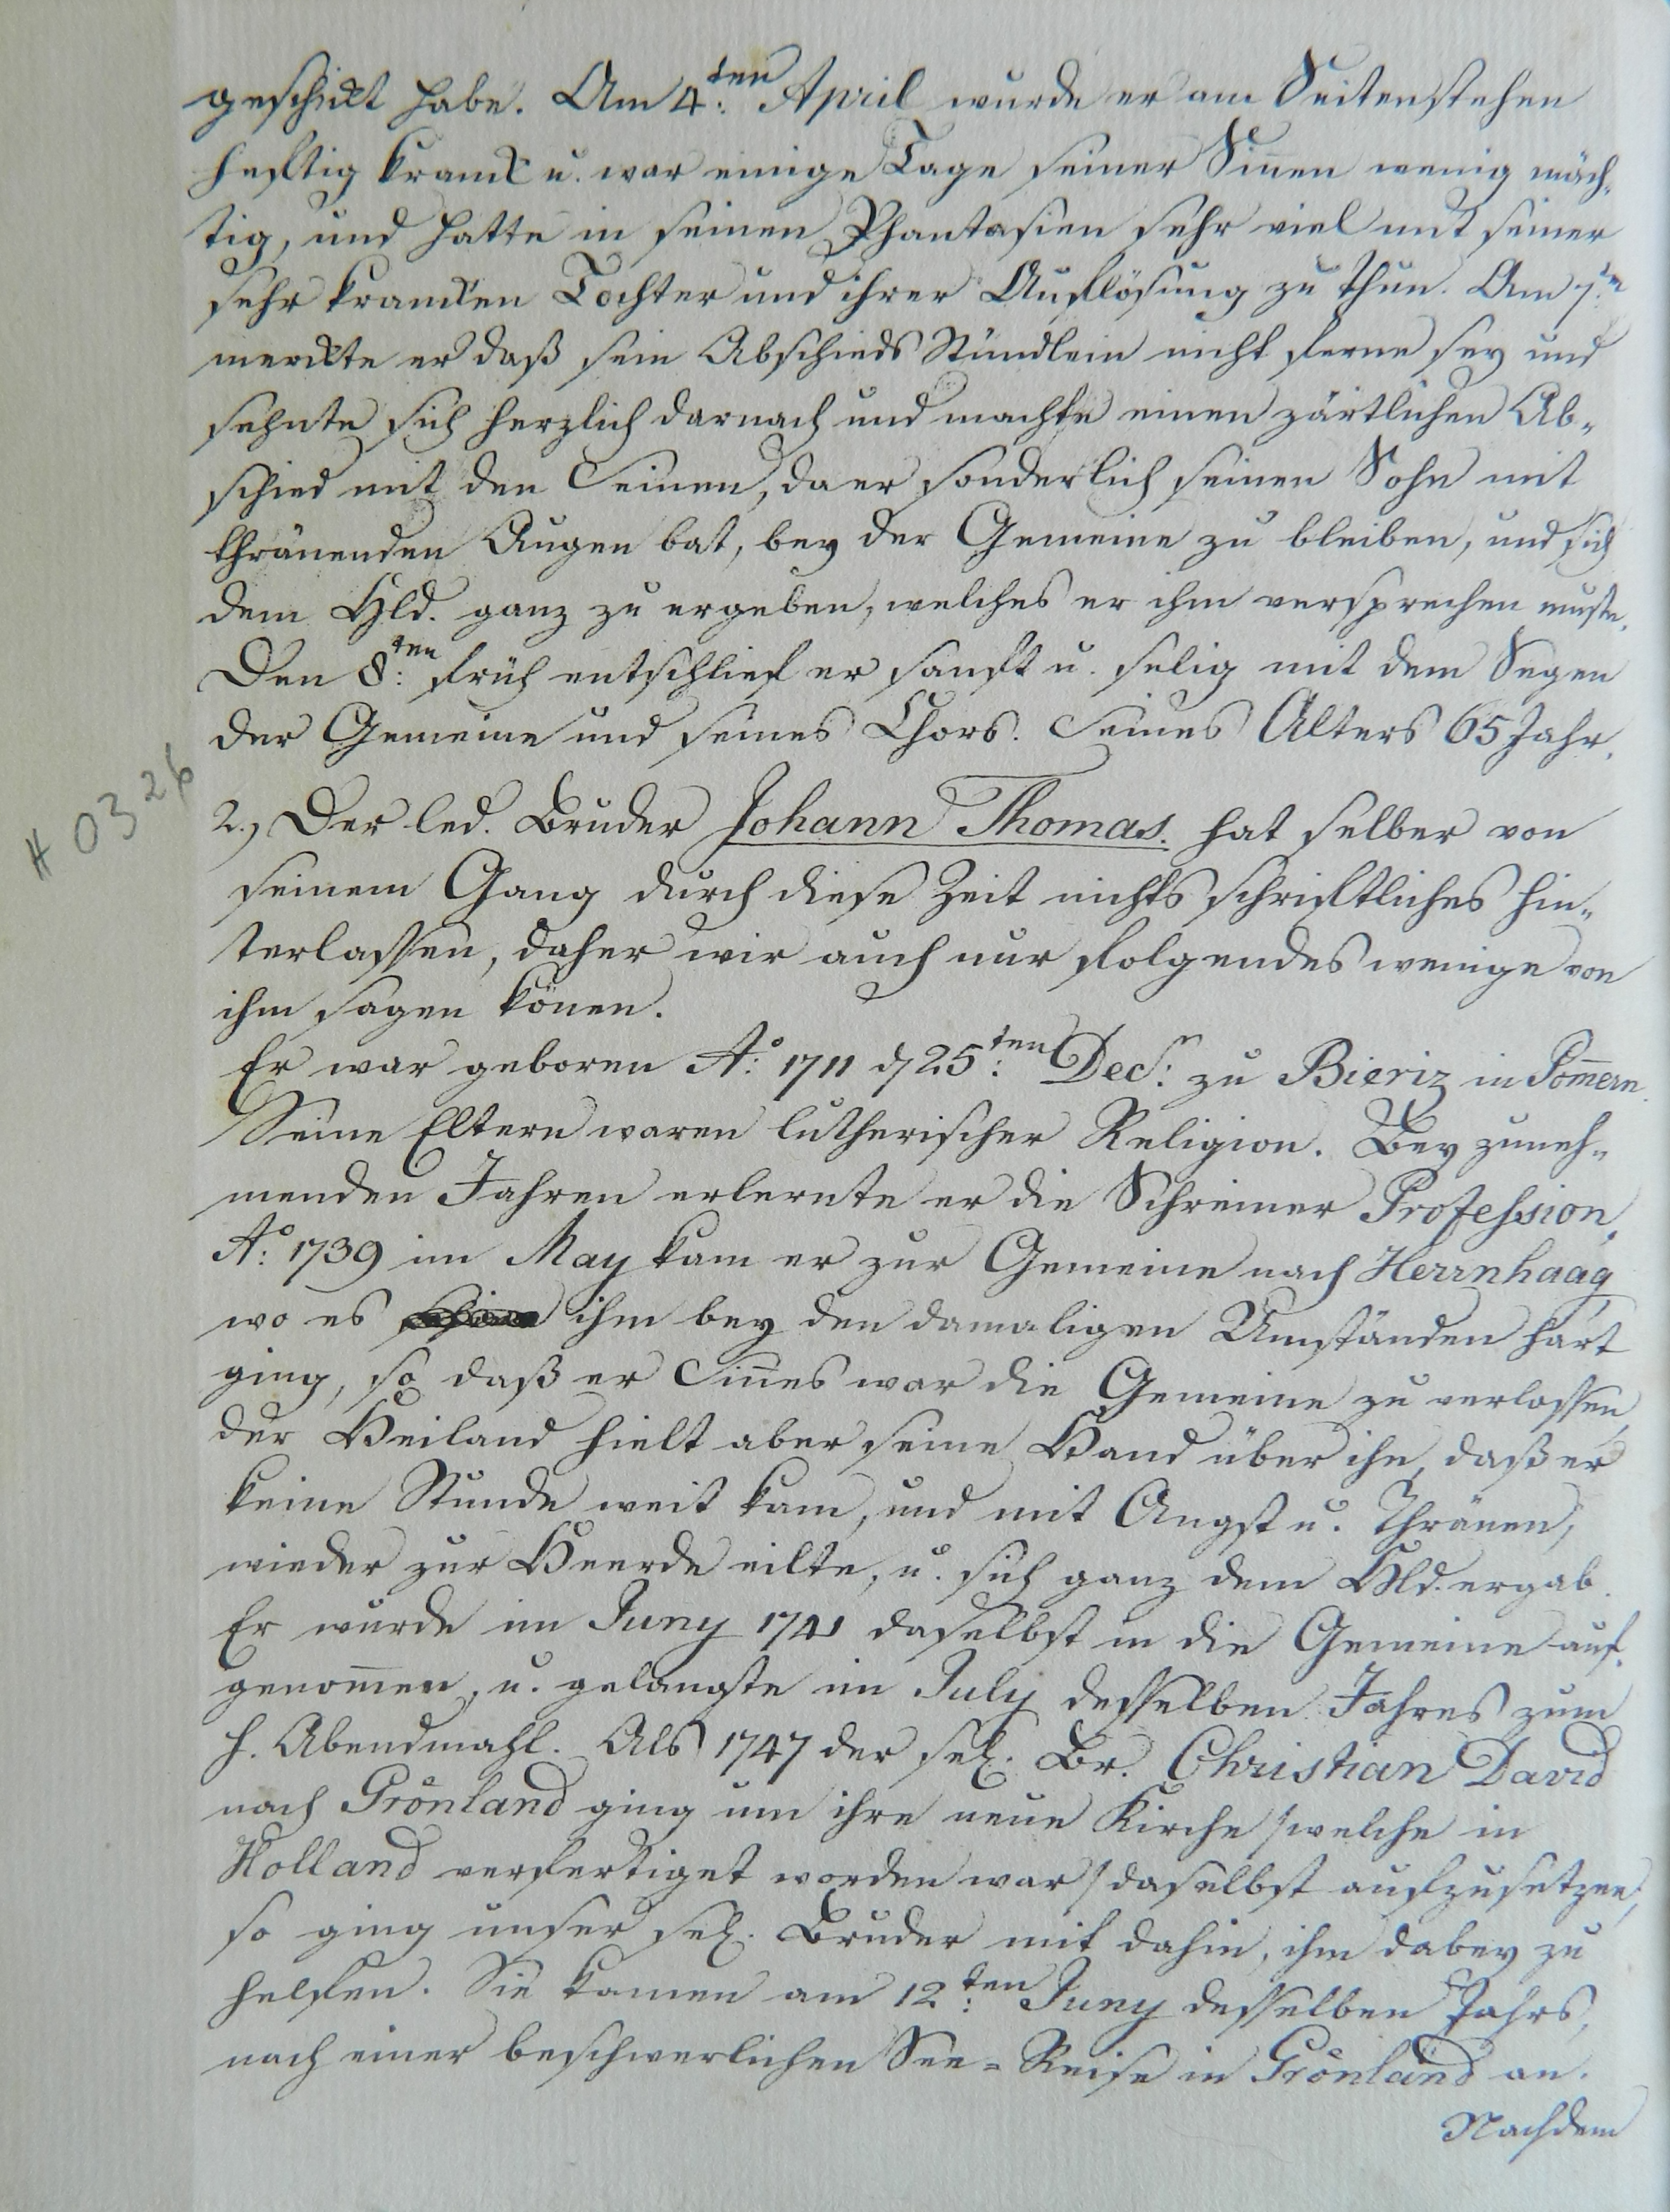 geschickt habe. Am 4:ten April wurde er am Seitenstechen
heftig kranck u. war einige Tage seiner Siñen wenig mäch-
tig, und hatte in seinen Phantasien sehr viel mit seiner
sehr krancken Tochter und ihrer Auflösung zu thun. Am 7:ten
merckte er daß sein Abschieds Stündlein nicht ferne sey und
sehnte sich herzlich darnach und machte einen zärtlichen Ab-
schied mit den Seinen, da er sonderlich seinen Sohn mit
thränenden Augen bat, bey der Gemeine zu bleiben, und sich
dem Hld. ganz zu ergeben, welches er ihm versprechen muste.
Den 8:ten früh entschlief er sanft u. selig mit dem Segen
der Gemeine und seines Chors. Seines Alters 65 Jahr.
# 0326
2., Der led. Bruder Johann Thomas. hat selber von
seinem Gang durch diese Zeit nichts schriftliches hin-
terlassen, daher wir auch nur folgendes wenige von
ihm sagen köñen.
Er war geboren A:o 1711 d 25:ten Dec:r zu Bieriz in Pom̃ern.
Seine Eltern waren lutherischer Religion. Bey zuneh-
menden Jahren erlernte er die Schreiner Profession.
A:o 1739 im May kam er zur Gemeine nach Herrnhaag
wo es ihm bey den damaligen Umständen hart
ging, so daß er Siñes war die Gemeine zu verlassen,
der Heiland hielt aber seine Hand über ihn, daß er
keine Stunde weit kam, und mit Angst u. Thränen,
wieder zur Heerde eilte, u. sich ganz dem Hld. ergab.
Er wurde im Juny 1741 daselbst in die Gemeine auf-
genom̃en, u. gelangte im July desselben Jahres zum
h. Abendmahl. Als 1747 der sel. Br. Christian David
nach Grönland ging um ihre neue Kirche /welche in
Holland verfertiget worden war/ daselbst aufzusetzen,
so ging unser sel. Bruder mit dahin, ihm dabey zu
helfen. Sie kamen am 12:ten Juny desselben Jahrs,
nach einer beschwerlichen See-Reise in Grönland an.
Nachdem